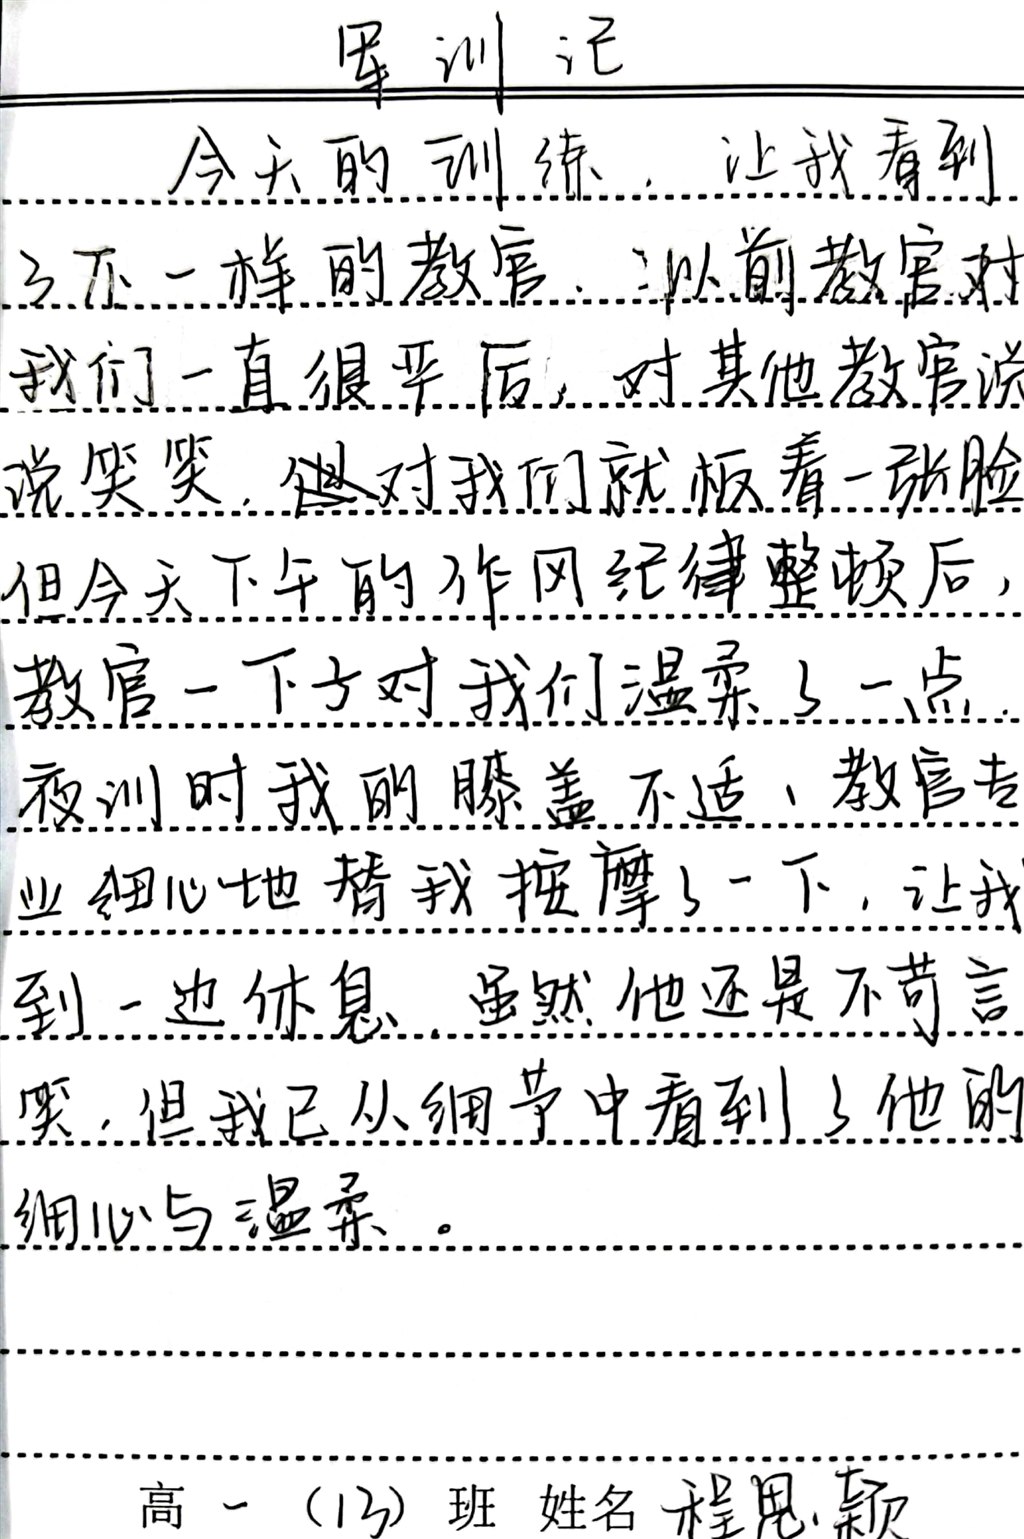 军训记
今天的训练，让我看到
了不一样的教官．以前教官对
我们一直很平后，对其他教官说
说笑笑．对我们就板着一张脸
但今天下午的作风纪律整顿后，
教官一下子对我们温柔了一点．
夜训时我的膝盖不适、教官专
业细心地替我按摩了一下，让我
到一边休息．虽然他还是不苟言
笑，但我已从细节中看到了他的
细心与温柔。
高一（13）班 姓名 程思颖